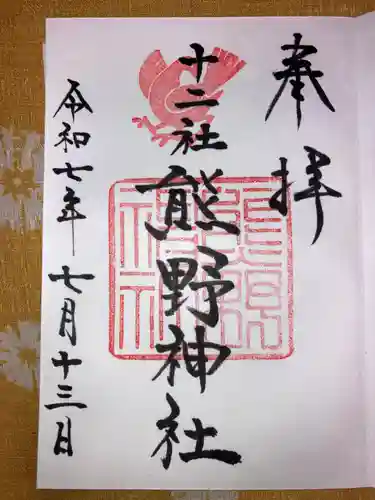 奉拝
十二社
熊野神社
令和七年 七月十三日